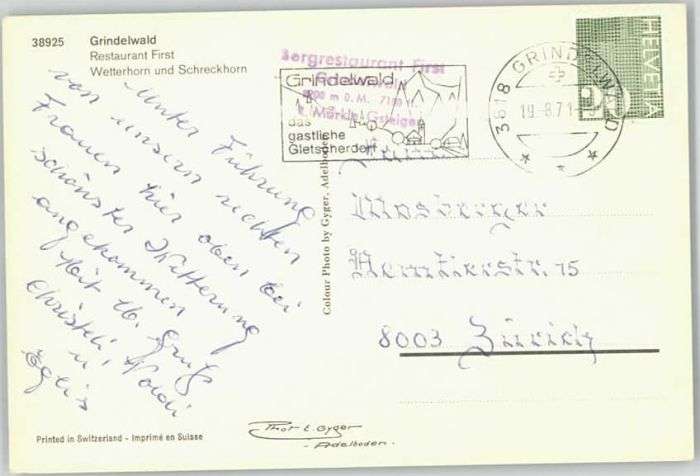 38925 Grindelwald
Restaurant First
Wetterhorn und Schreckhorn
Bergrestaurant First
Grindelwald
2200 m ü. M.
Märkle-Gsteiger
Grindelwald
das
gastliche
Gletscherdorf
3818 GRINDELWALD
19-8.71
HELVETIA
20
Unter Führung
von unsern rechten
Frauen hier oben bei
schönster Witterung
angekommen
Mit lb. Gruss
Christeli, Noldi
u.
Eglis
Colour Photo by Gyger, Adelboden
Familie
Mosberger
75
8003 Zürich
Printed in Switzerland - Imprimé en Suisse
Phot E. Gyger
- Adelboden -